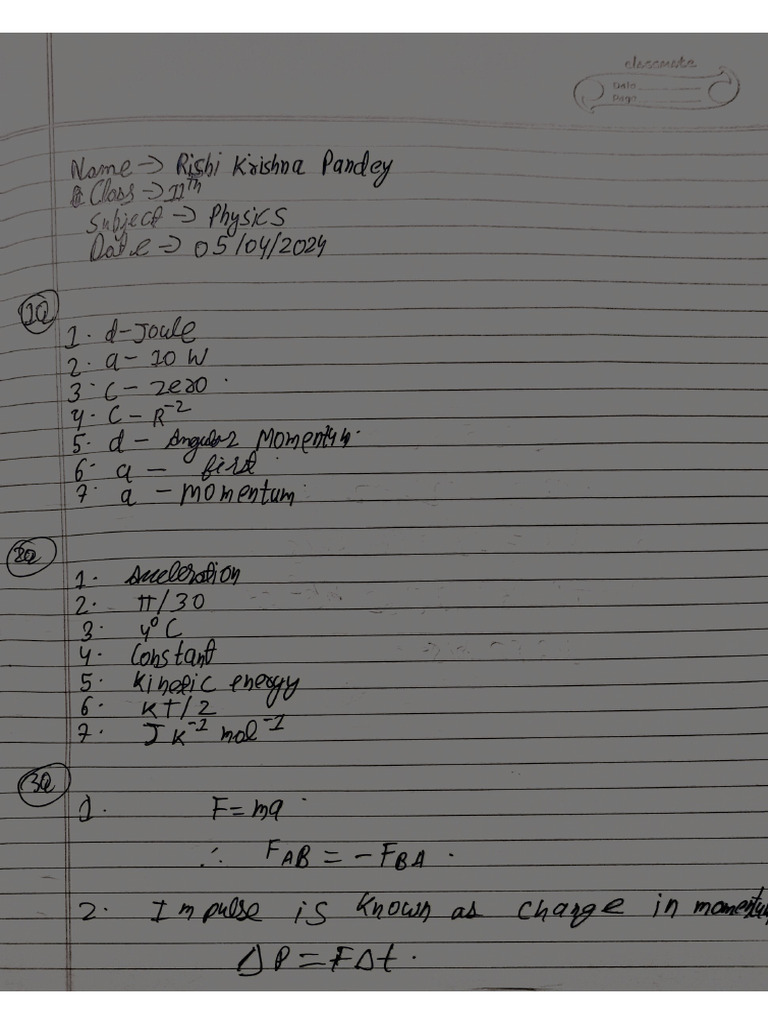 classmate
Date
Page
Name → Rishi Krishna Pandey
Class → 11th
Subject → Physics
Date → 05/04/2024
1Q
1. d - Joule
2. a - 10 W
3. C - zero.
4. C - R⁻²
5. d - Angular Momentum.
6. a - first.
7. a - Momentum.
2Q
1. Acceleration
2. π/30
3. 4°C
4. Constant
5. Kinetic energy
6. KT/2
7. J K⁻¹ mol⁻¹
3Q
1. F = ma.
∴ F_AB = - F_BA.
2. Impulse is known as change in momentum
ΔP = FΔt.